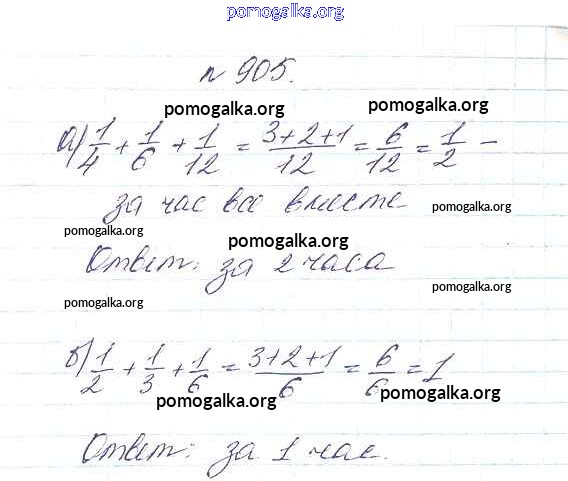 pomogalka.org
n 905.
pomogalka.org pomogalka.org
а) 1/4 + 1/6 + 1/12 = 3+2+1/12 = 6/12 = 1/2 –
за час все вместе pomogalka.org
pomogalka.org pomogalka.org
Ответ: за 2 часа
pomogalka.org pomogalka.org
б) 1/2 + 1/3 + 1/6 = 3+2+1/6 = 6/6 = 1
pomogalka.org pomogalka.org
Ответ: за 1 час.